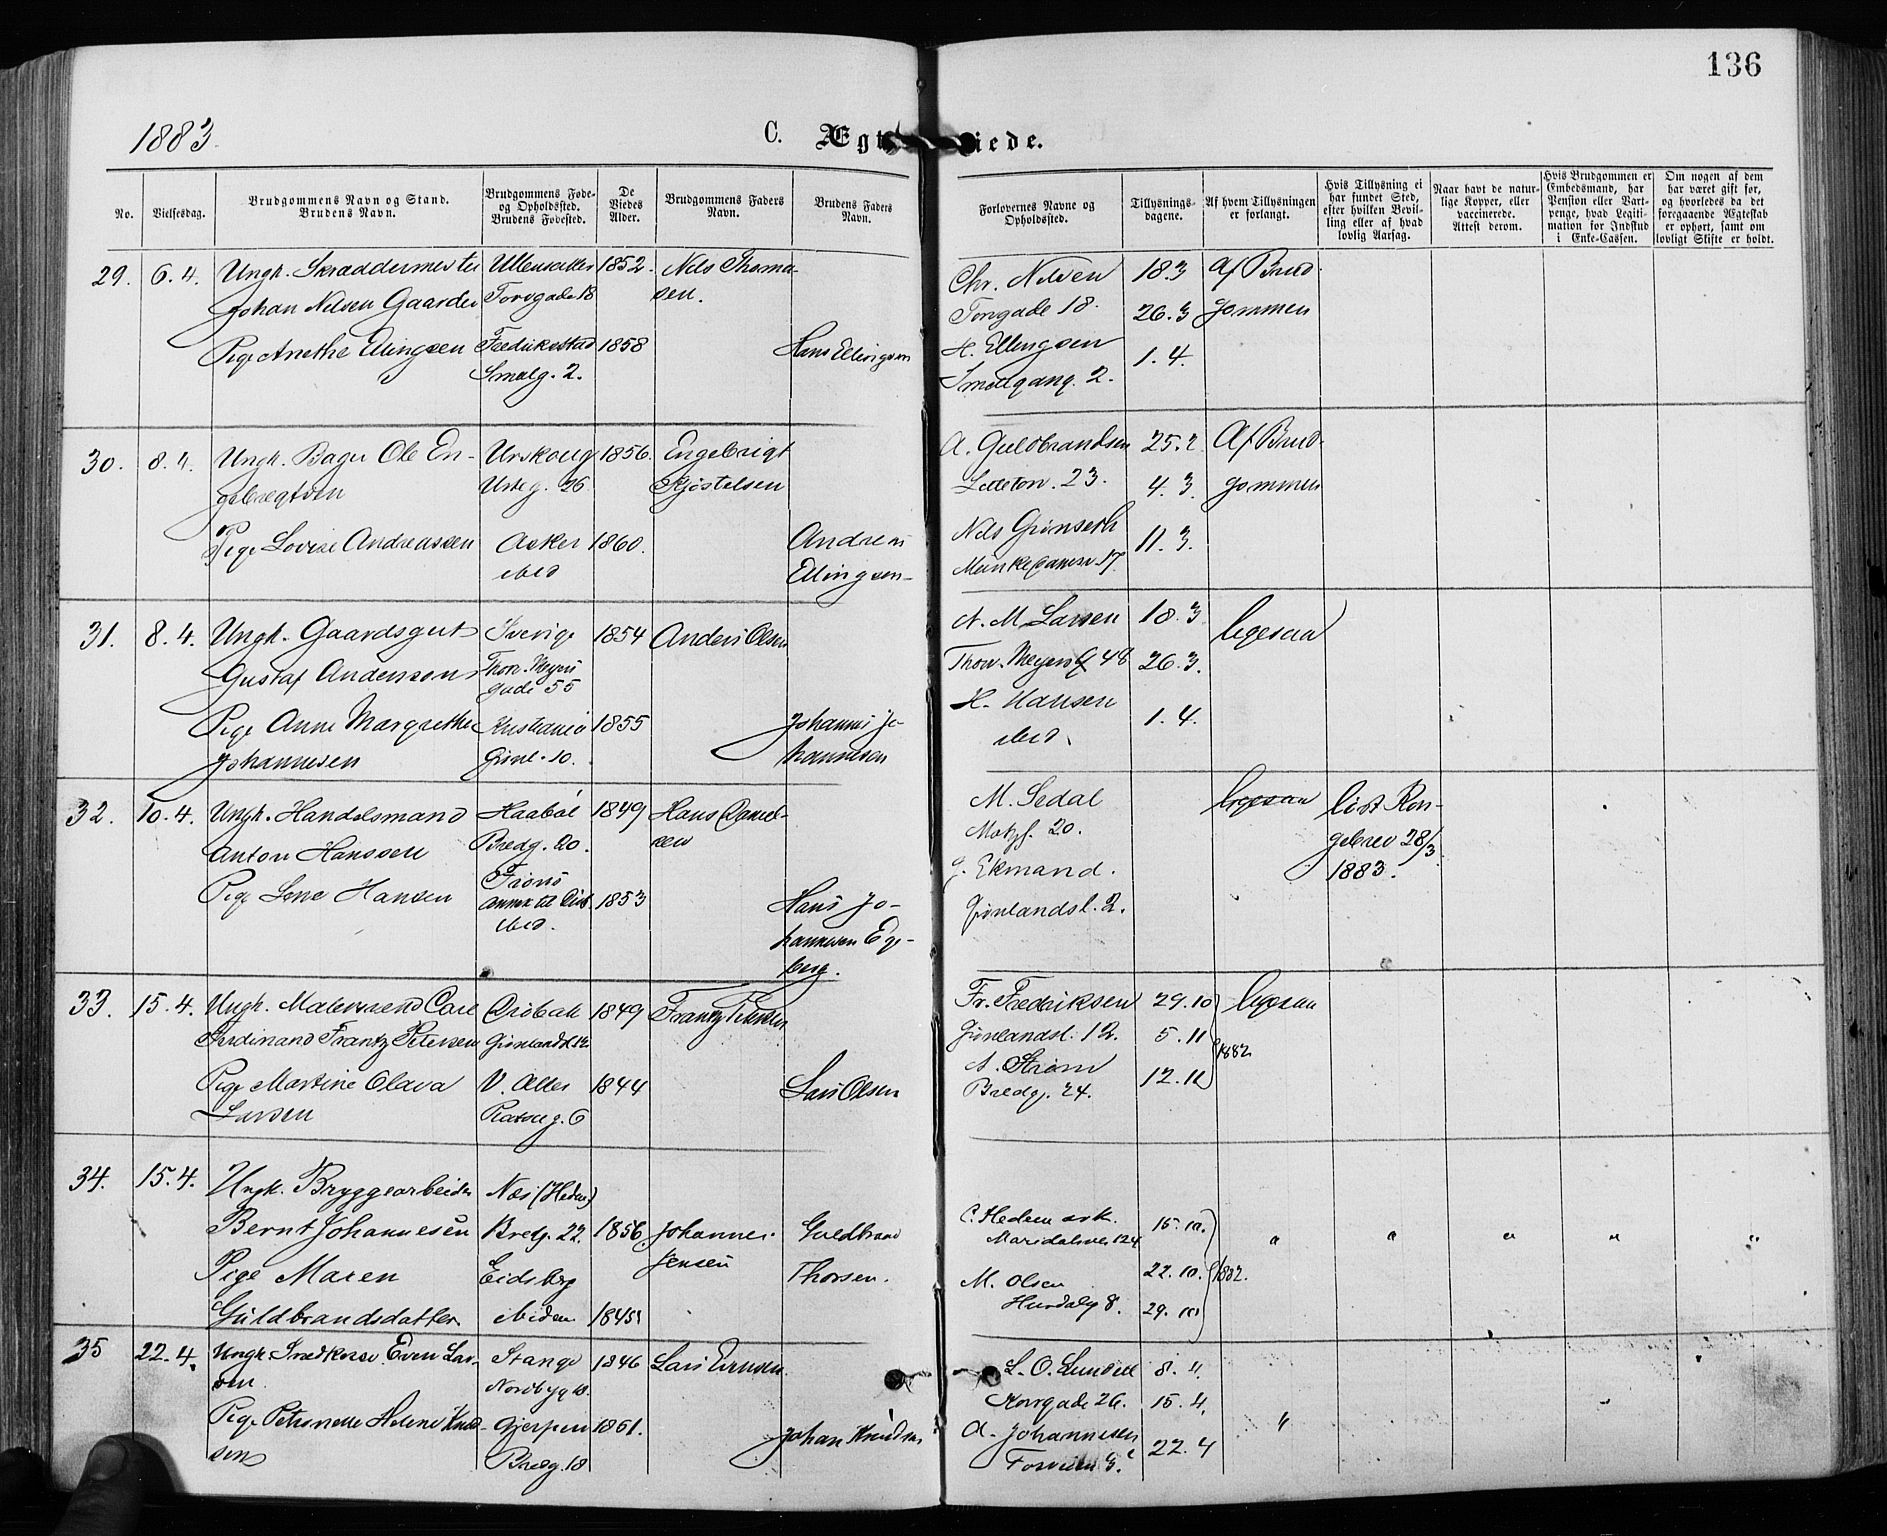 136
1883.
C. Ægt iede.
No.
Vielsesdag.
Brudgommens Navn og Stand.
Brudens Navn.
Brudgommens Føde-
og Opholdssted.
Brudens Fødested.
De
Viedes
Alder.
Brudgommens Faders
Navn.
Brudens Faders
Navn.
Forlovernes Navne og
Opholdssted.
Tillysnings-
dagene.
Af hvem Tillysningen
er forlangt.
Hvis Tillysning ei
har fundet Sted,
efter hvilken Bevil-
ling eller af hvad
lovlig Aarsag.
Naar havt de natur-
lige Kopper, eller
vaccinerede.
Attest derom.
Hvis Brudgommen er
Embedsmand, har
Pension eller Vart-
penge, hvad Legiti-
mation for Indskud
i Enke-Cassen.
Om nogen af dem
har været gift før,
og hvorledes da det
foregaaende Ægteskab
er ophørt, samt om
lovligt Skifte er holdt.
29. 6.4. Ungk. Skræddermester Ullensaker 1852. Nils Thoma-
Johan Nilsen Gaarder Torvgade 18 sen.
Pige Anethe Ellingsen Fredrikstad 1858 Hans Ellingsen
Smalg. 2.
Chr. Nilsen 18.3 Af Brud-
Torvgade 18. 26.3 gommen
H. Ellingsen 1.4.
Smalgang. 2.
30. 8.4. Ungk. Bager Ole En- Urskoug 1856. Engebrigt
gebregtsen Urteg. 26 Kjøstelsen
Pige Lovise Andreassen Asker 1860. Andreas
ibid Ellingsen
A. Guldbrandsen 25.2 Af Brud-
Lilletorv. 23. 4.3. gommen
Nils Grønseth 11.3.
17.
31. 8.4. Ungk. Gaardsgut Sverige 1854 Anders Olsen
Gustaf Anderssen Thorv. Meyers
gade 55
Pige Anne Margrethe Kristiania 1855 Johannes Jo-
Johannesen Grønl. 10. hannesen
A. M. Larsen 18.3. ligesaa
Thorv. Meyers G 48 26.3.
H. Hansen 1.4.
ibid.
32. 10.4. Ungk. Handelsmand Haabøl 1849 Hans Daniel-
Anton Hanssen Bredg. 20. sen
Pige Lene Hansen 1853 Hans Jo-
annex til
ibid. hannesen Ege-
berg.
M. Sedal ligesaa list Kon-
Motzf. 20. gebrev 28/3
G. Ekmand. 1883.
Grønlandsl. 2.
33. 15.4. Ungk. Malersvend Carl Drøbak 1849 Frantz Petersen
Ferdinand Frantz Petersen Grønlandsl 12.
Pige Martine Olava V. Aker 1844 Lars Olsen
Larsen Platoug. 6
Fr. Fredriksen 29.10 ligesaa
Grønlandsl. 12. 5.11 1882
A. Strøm 12.11
Bredg. 24.
34. 15.4. Ungk. Bryggearbeider Næs (Hedem)
Bernt Johannesen Bredg. 22. 1856. Johannes Guldbrand
Jensen
Pige Maren Eidsberg Thorsen.
Guldbrandsdatter ibidem 1845
C. Hedem ark. 15.10. " " " " "
Maridalsvei 124
M. Olsen 22.10. 1882.
Hurdalg 8. 29.10
35 22.4. Ungk Snedker Even Lar- Stange 1846 Lars Evensen
sen Nordbyg 18.
Pige Petronelle Helene Knud- Gjerpen 1861. Johan Knudsen
sen Bredg. 18
L. O. Lundell 8.4.
Korsgade 26. 15.4. "
A. Johannesen 22.4